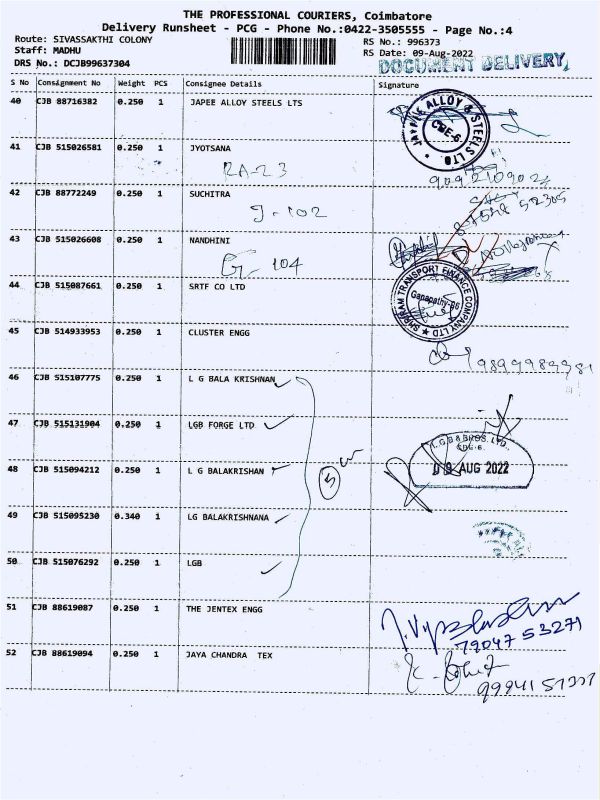 THE PROFESSIONAL COURIERS, Coimbatore
Delivery Runsheet - PCG - Phone No.:0422-3505555 - Page No.:4
Route: SIVASSAKTHI COLONY
RS No.: 996373
Staff: MADHU
RS Date: 09-Aug-2022
DRS No.: DCJB99637304
DOCUMENT DELIVERY
S No Consignment No Weight PCS Consignee Details Signature
40 CJB 88716382 0.250 1 JAPEE ALLOY STEELS LTS
ALLOY & STEELS LTD.
CBE-6.
41 CJB 515026581 0.250 1 JYOTSANA
RA-23
42 CJB 88772249 0.250 1 SUCHITRA
J-102
43 CJB 515026608 0.250 1 NANDHINI
G-104
44 CJB 515087661 0.250 1 SRTF CO LTD
SHRIRAM TRANSPORT FINANCE COMPANY LTD
Ganapathy-06
45 CJB 514933953 0.250 1 CLUSTER ENGG
9899989981
46 CJB 515107775 0.250 1 L G BALA KRISHNAN
47 CJB 515131904 0.250 1 LGB FORGE LTD
L.G.B & BROS. LTD.,
CBE-6.
48 CJB 515094212 0.250 1 L G BALAKRISHAN
5
09 AUG 2022
49 CJB 515095230 0.340 1 LG BALAKRISHNANA
50 CJB 515076292 0.250 1 LGB
51 CJB 88619087 0.250 1 THE JENTEX ENGG
79047 53271
52 CJB 88619094 0.250 1 JAYA CHANDRA TEX